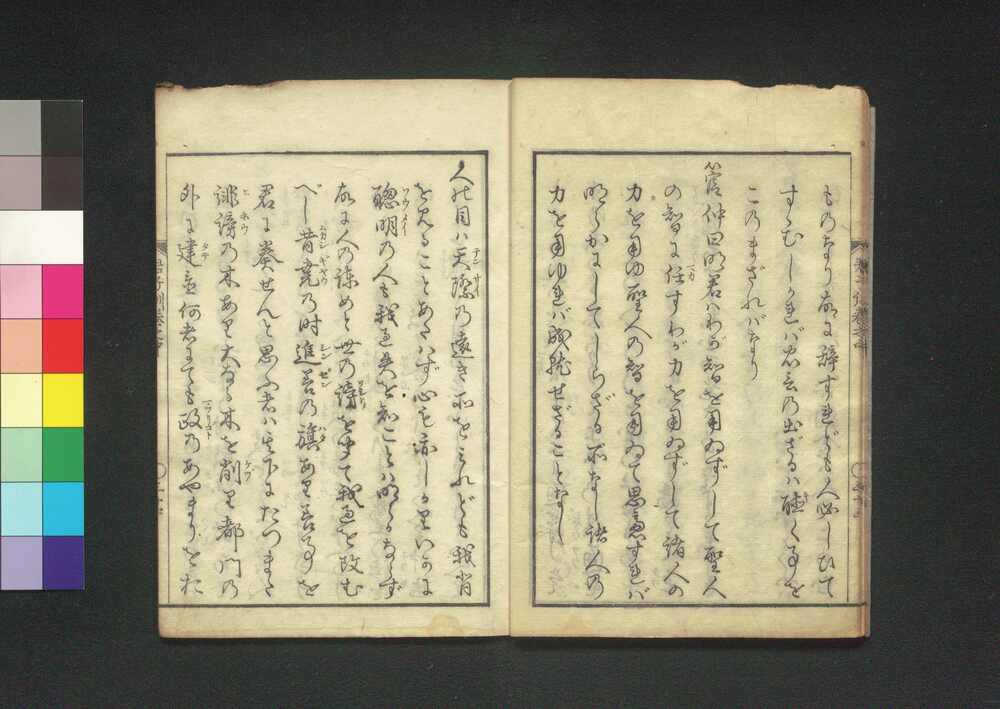 ものなり故に辞すれども人必しひて
すゝむしかれば名言の出ざるは醴くる事を
この まざればなり
管仲曰明君はわが智を用ゐずして聖人
の智に任すわが力を用ゐずして諸人の
力を用ゆ聖人の智を用ゐて思慮すれば
明らかにしてしらざる所なし諸人の
力を用ゆれば成就せざることなし
人の目は天際の遠き所をみれども我背
を見ることあたはず心も亦しかりいかに
聰明の人も我過失を知ことは明らかならず
故に人の諫めと世の謗を聞て我過を改む
べし昔堯の時進善の旗あり善事を
君に奏せんと思ふ者は其下にたつまた
誹謗の木あり大なる木を削り都門の
外に建置何者にても政のあやまりをた